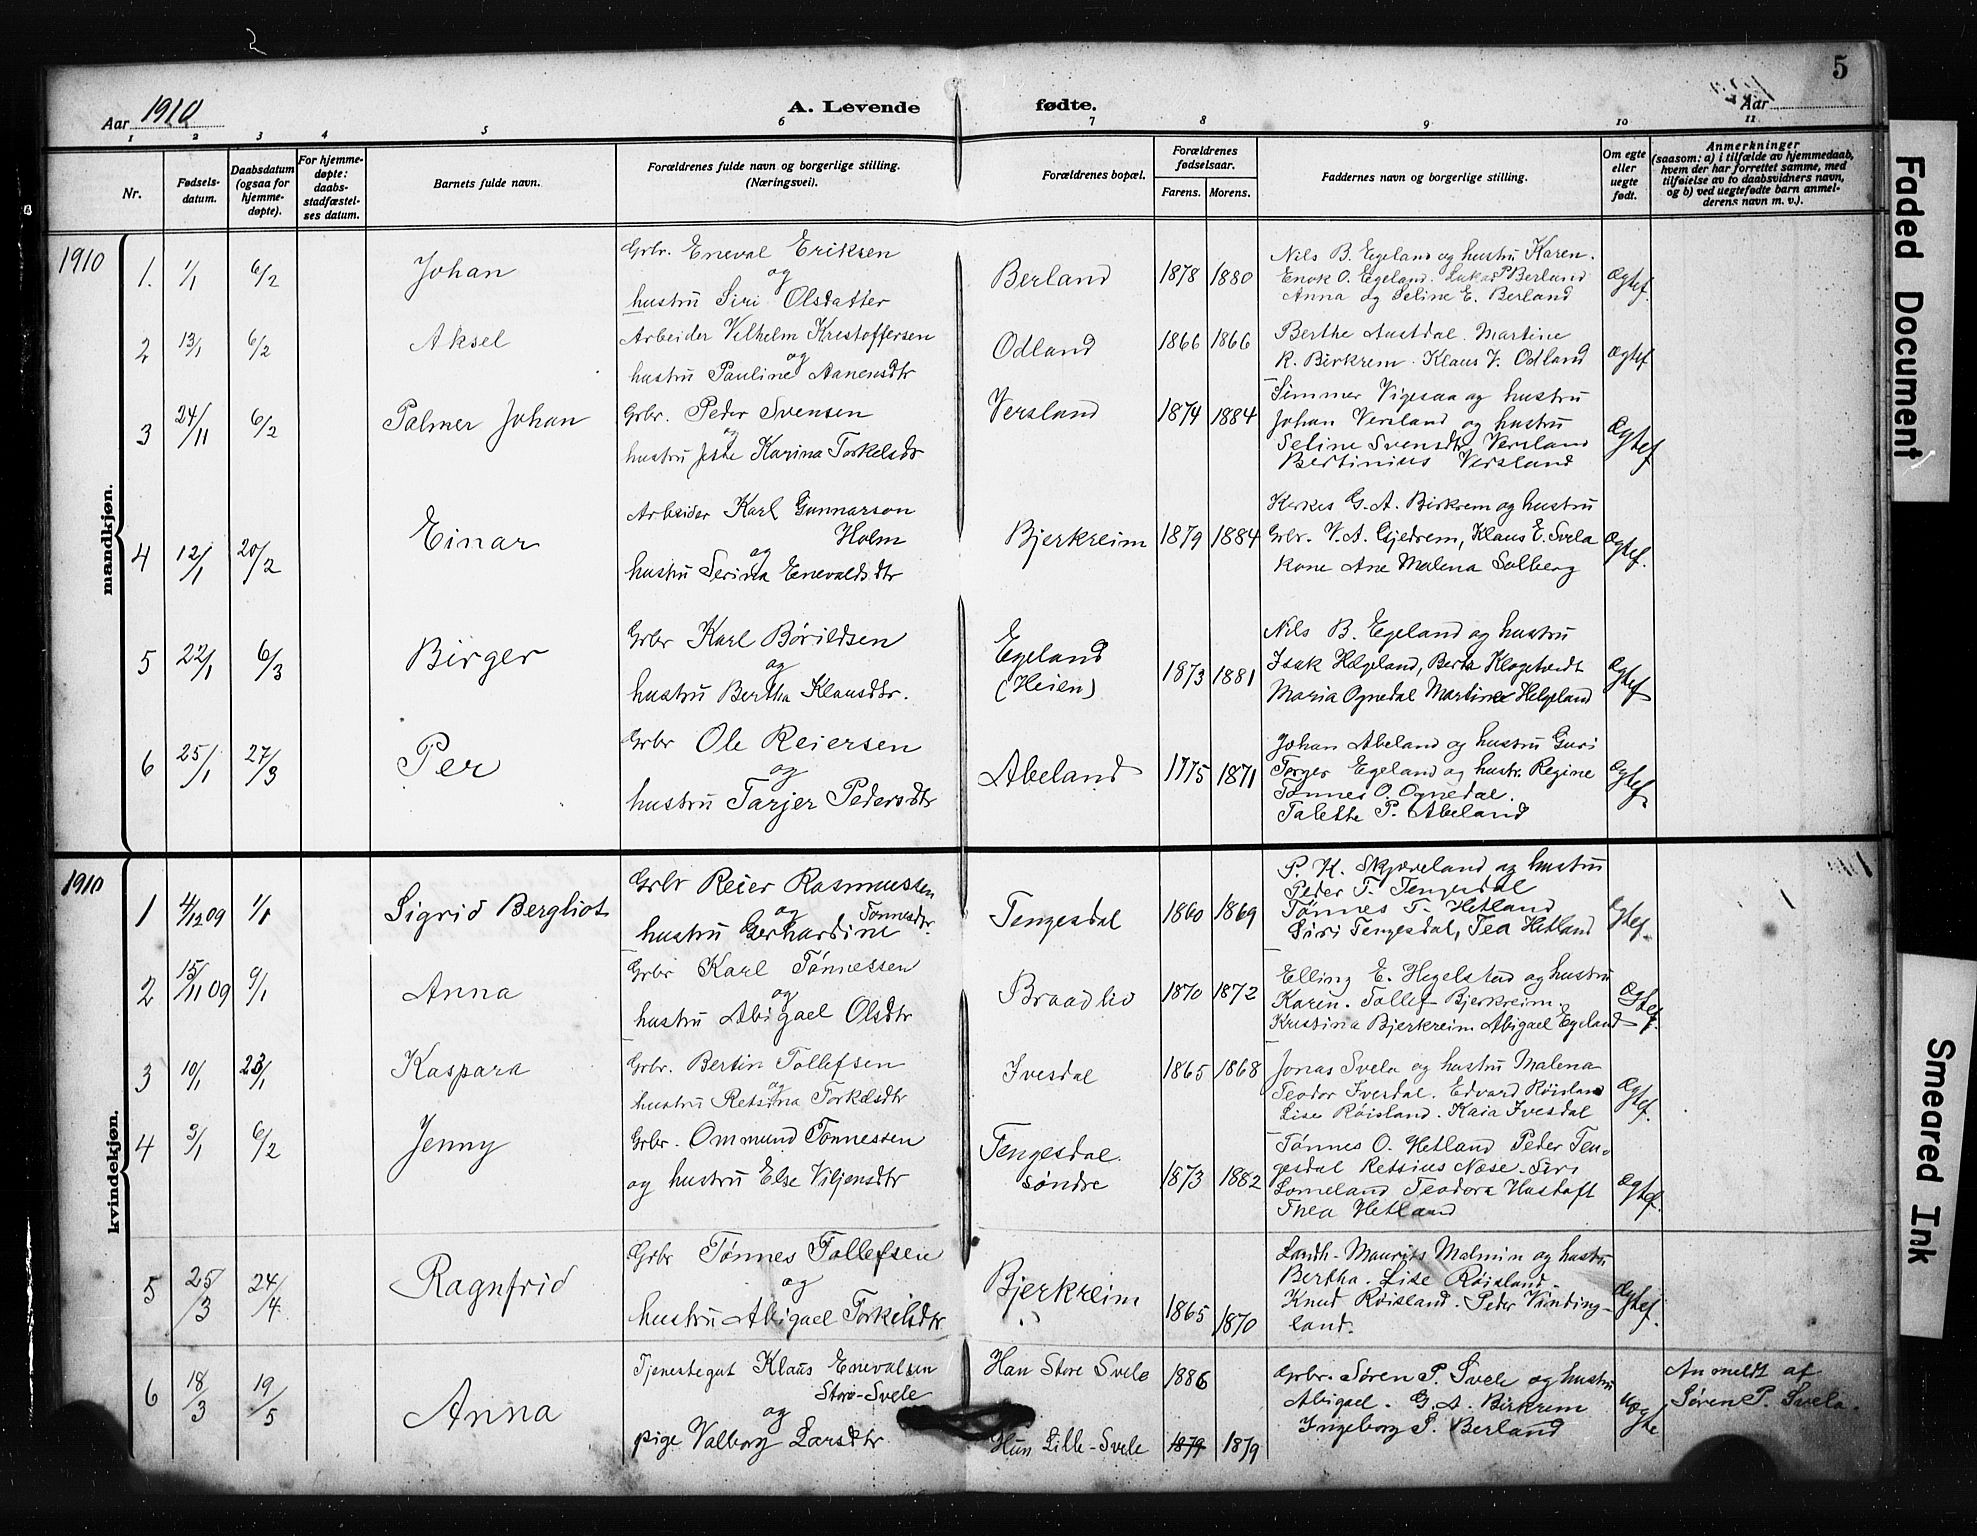 5
Aar 1910
A. Levende fødte.
Aar
1 2 3 4 5 6 7 8 9 10 11
Nr.
Fødsels-
datum.
Daabsdatum
(ogsaa for
hjemme-
døpte).
For hjemme-
døpte:
daabs-
stadfæstel-
ses datum.
Barnets fulde navn.
Forældrenes fulde navn og borgerlige stilling.
(Næringsvei).
Forældrenes bopæl.
Forældrenes
fødselsaar.
Farens. Morens.
Faddernes navn og borgerlige stilling.
Om egte
eller
uegte
født.
Anmerkninger
(saasom: a) i tilfælde av hjemmedaab,
hvem der har forrettet samme, med
tilføielse av to daabsvidners navn,
og b) ved uegtefødte barn anmel-
derens navn m. v.).
mandkjøn.
1910
1. 1/1 6/2 Johan
Grbr. Eneval Eriksen
og
hustru Siri Olsdatter
Berland 1878 1880
Nils B. Egeland og hustru Karen.
Enok O. Egeland. Lukas P Berland
Anna og Seline E. Berland
Ægtef.
2 13/1 6/2 Aksel
Arbeider Vilhelm Kristoffersen
og
hustru Pauline Aanensdtr
Odland 1866 1866
Berthe Austdal. Martine
R. Birkrem. Klaus V. Odland
Ægtef
3 24/11 6/2 Palmer Johan
Grbr. Peder Svensen
og
hustru Karina Torkelsdr
Versland 1874 1884
Simmer Vigesaa og hustru
Johan Versland og hustru
Seline Svensdtr Versland
Bertinius Versland
Ægtef
4 12/1 20/2 Einar
Arbeider Karl Gunnarson
Holm
og
hustru Serina Enevaldsdtr
Bjerkreim 1879 1884
Kirkes G. A. Birkrem og hustru
Grbr. V. A. Gjedrem, Klaus E. Svela
Kone Ane Malena Solberg
Ægtef.
5 22/1 6/3 Birger
Grbr Karl Børildsen
og
hustru Bertha Klausdtr.
Egeland
(Heien)
1873 1881
Nils B. Egeland og hustru
Isak Helgeland, Berta Klogetvedt
Maria Ognedal Martine Helgeland
Ægtef
6 25/1 27/3 Per
Grbr Ole Reiersen
og
hustru Tarjer Pedersdtr
Abeland 1775 1871
Johan Abeland og hustru Guri
Torger Egeland og hustr. Regine
Tønnes O. Ognedal.
Talette P. Abeland
Ægtef.
kvindekjøn.
1910
1 4/12 09 1/1 Sigrid Bergliot
Grbr Reier Rasmussen
og Tønnesdtr.
hustru Gerhardine
Tengesdal 1860 1869
P. K. Skjæveland og hustru
Peder T. Tengesdal
Tønnes T. Hetland
Siri Tengesdal, Tea Hetland
Egtef.
2 15/11 09 9/1 Anna
Grbr Karl Tønnessen
og
hustru Abigael Olsdtr
Braadlid 1870 1872
Elling E. Hegelstad og hustru
Karen. Tollef Bjerkreim.
Kristina Bjerkreim Abigael Egeland
Ægtef.
3 10/1 23/1 Kaspara
Grbr. Bertin Tollefsen
og
hustru Retsina Torkelsdtr
Ivesdal 1865 1868
Jonas Svela og hustru Malena
Teodor Ivesdal. Edvard Røisland
Lise Røisland. Kaia Ivesdal
Ægtef.
4 3/1 6/2 Jenny
Grbr. Ommund Tønnessen
og hustru Else Viljensdtr
Tengesdal
søndre
1873 1882
Tønnes O. Hetland Peder Ten-
gesdal Retsius Næse. Siri
Lomeland Teodora Hustoft
Thea Hetland
Ægtef.
5 25/3 24/4. Ragnfrid
Grbr Tønnes Tollefsen
og
hustru Abigael Torkelsdtr
Bjerkreim
1865 1870
Landh. Maurits Malmin og hustru
Bertha. Lise Røisland.
Knud Røisland. Peder Vinding-
land.
Ægtef.
6 18/3 19/5 Anna
Tjenestegut Klaus Enevalsen
Store-Svele
og
pige Valborg Larsdtr
Han Store Svele 1886
Hun Lille-Svele 1879 1879
Grbr. Søren P. Svele og hustru
Abigael. G. A. Birkrem
Ingeborg S. Berland
uægte
Anmeldt af
Søren P. Svela.
Faded Document
Smeared Ink